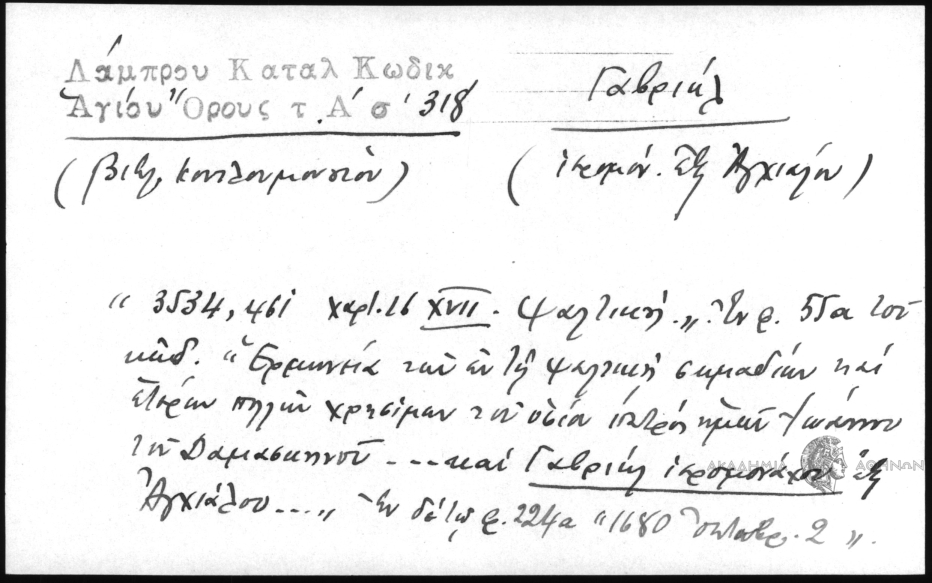 Λάμπρου Καταλ Κωδικ
Ἁγίου Ὄρους τ. Α' σ' 318
Γαβριήλ
(βιβλ. Κουτλουμουσίου)
(ἱερομόν. ἐξ Ἀγχιάλου)
“ 3534, 461 χαρτ. 16 XVII. Ψαλτική.„ Ἐν φ. 55α τοῦ
κώδ. “Ἑρμηνεία τῶν ἐν τῇ ψαλτικῇ σημαδίων καὶ
ἑτέρων χρησίμων τοῦ ὁσίου πατρὸς ἡμῶν Ἰωάννου
τοῦ Δαμασκηνοῦ ... καὶ Γαβριὴλ ἱερομονάχου ἐξ
Ἀγχιάλου ...„ Ἐν δὲ τῷ φ. 224α “1680 ὀκτωβρ. 2 „.
ΑΚΑΔΗΜΙΑ ΑΘΗΝΩΝ